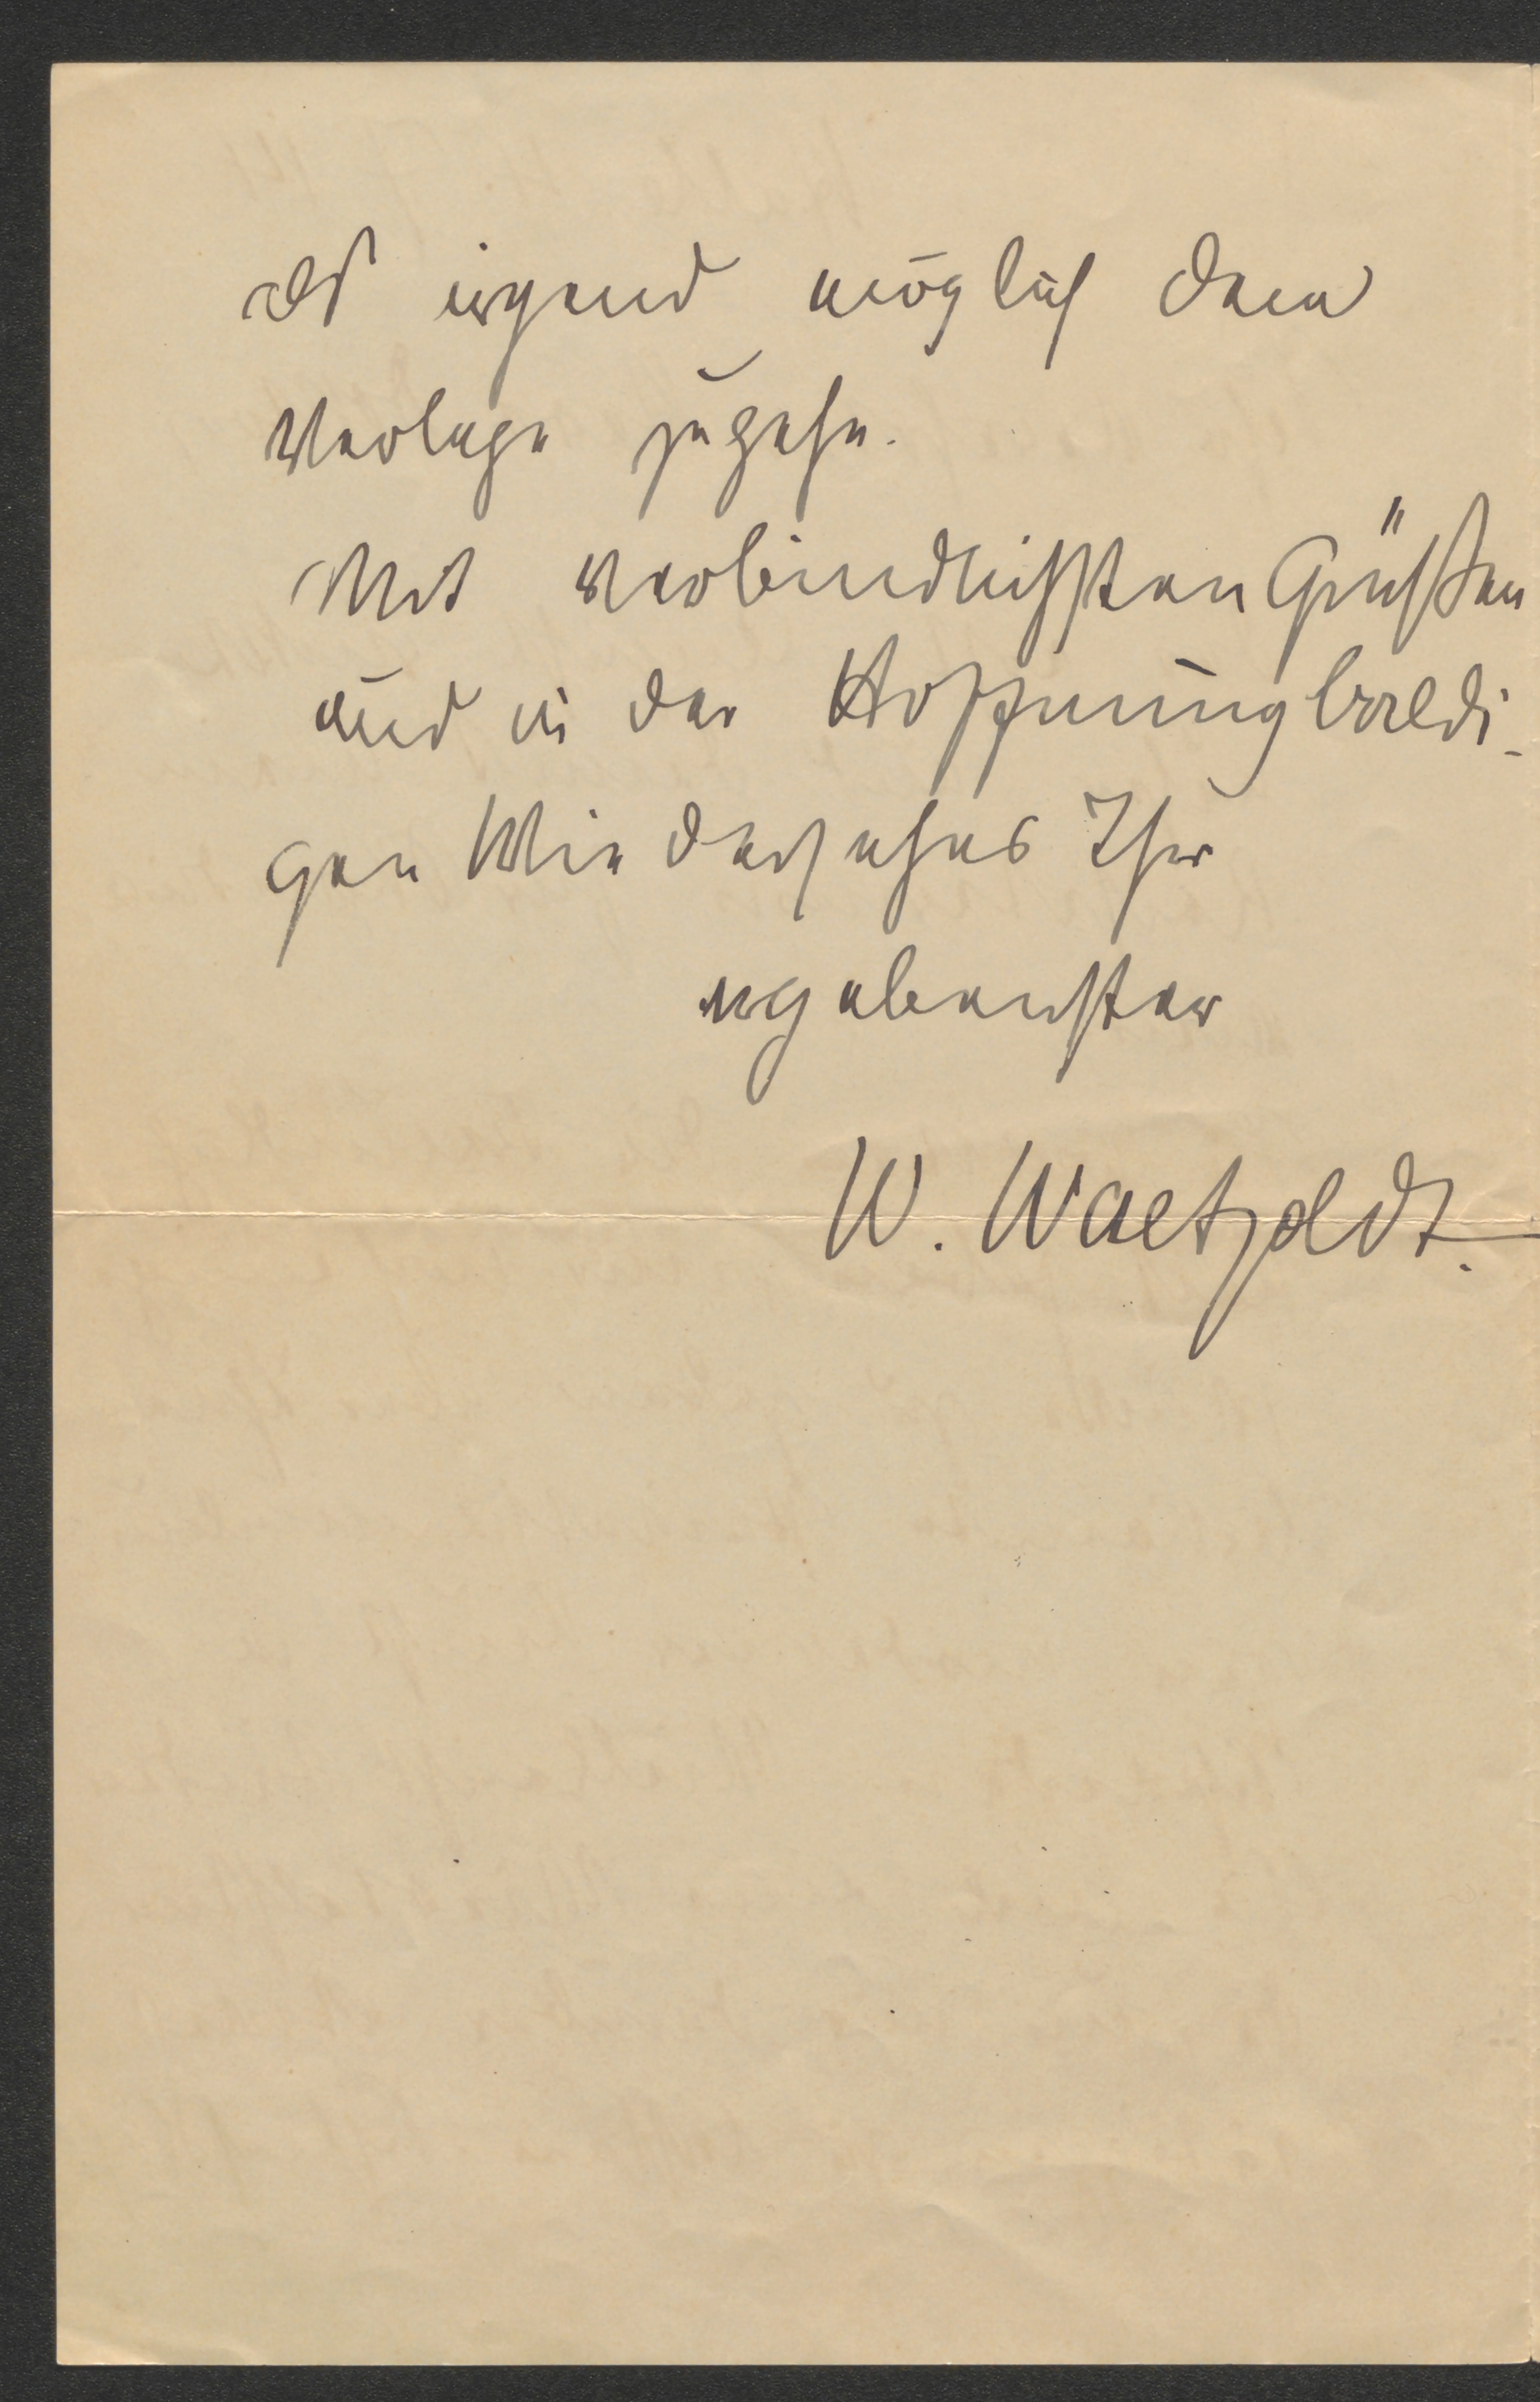 als irgend möglich dem
Verlage zugehn.
Mit verbindlichsten Grüßen
und in der Hoffnung baldi-
gen Wiedersehens Ihr
ergebenster
W. Waetzoldt.